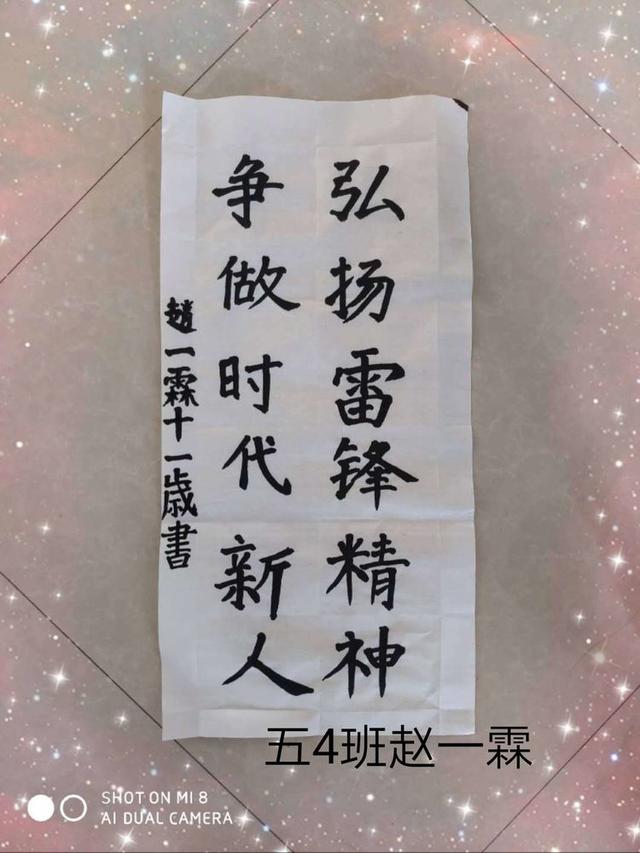 弘扬雷锋精神
争做时代新人
趙一霖十一歳書
五4班赵一霖
SHOT ON MI 8
AI DUAL CAMERA